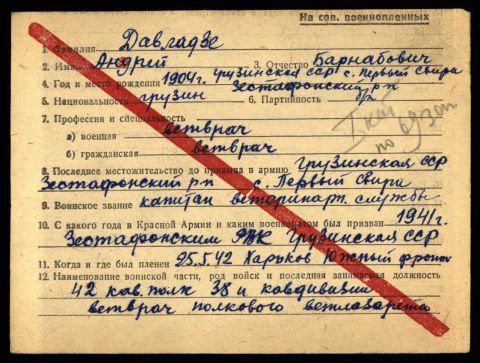 На сов. военнопленных
1. Фамилия Давладзе
2. Имя Андрей 3. Отчество Барнабович
4. Год и место рождения 1904 г. грузинская ССР с. Первый Свири
Зестафонский р-н
5. Национальность грузин 6. Партийность б/п
7. Профессия и специальность
а) военная ветврач
б) гражданская ветврач
8. Последнее местожительство до призыва в армию грузинская ССР
Зестафонский р-н с. Первый Свири
9. Воинское звание капитан ветеринарн. службы
10. С какого года в Красной Армии и каким военкоматом был призван 1941 г.
Зестафонским РВК Грузинская ССР
11. Когда и где был пленен 25.5.42 Харьков Южный фронт
12. Наименование воинской части, род войск и последняя занимаемая должность
42 кав. полк 38 й кавдивизии
ветврач полкового ветлазарета